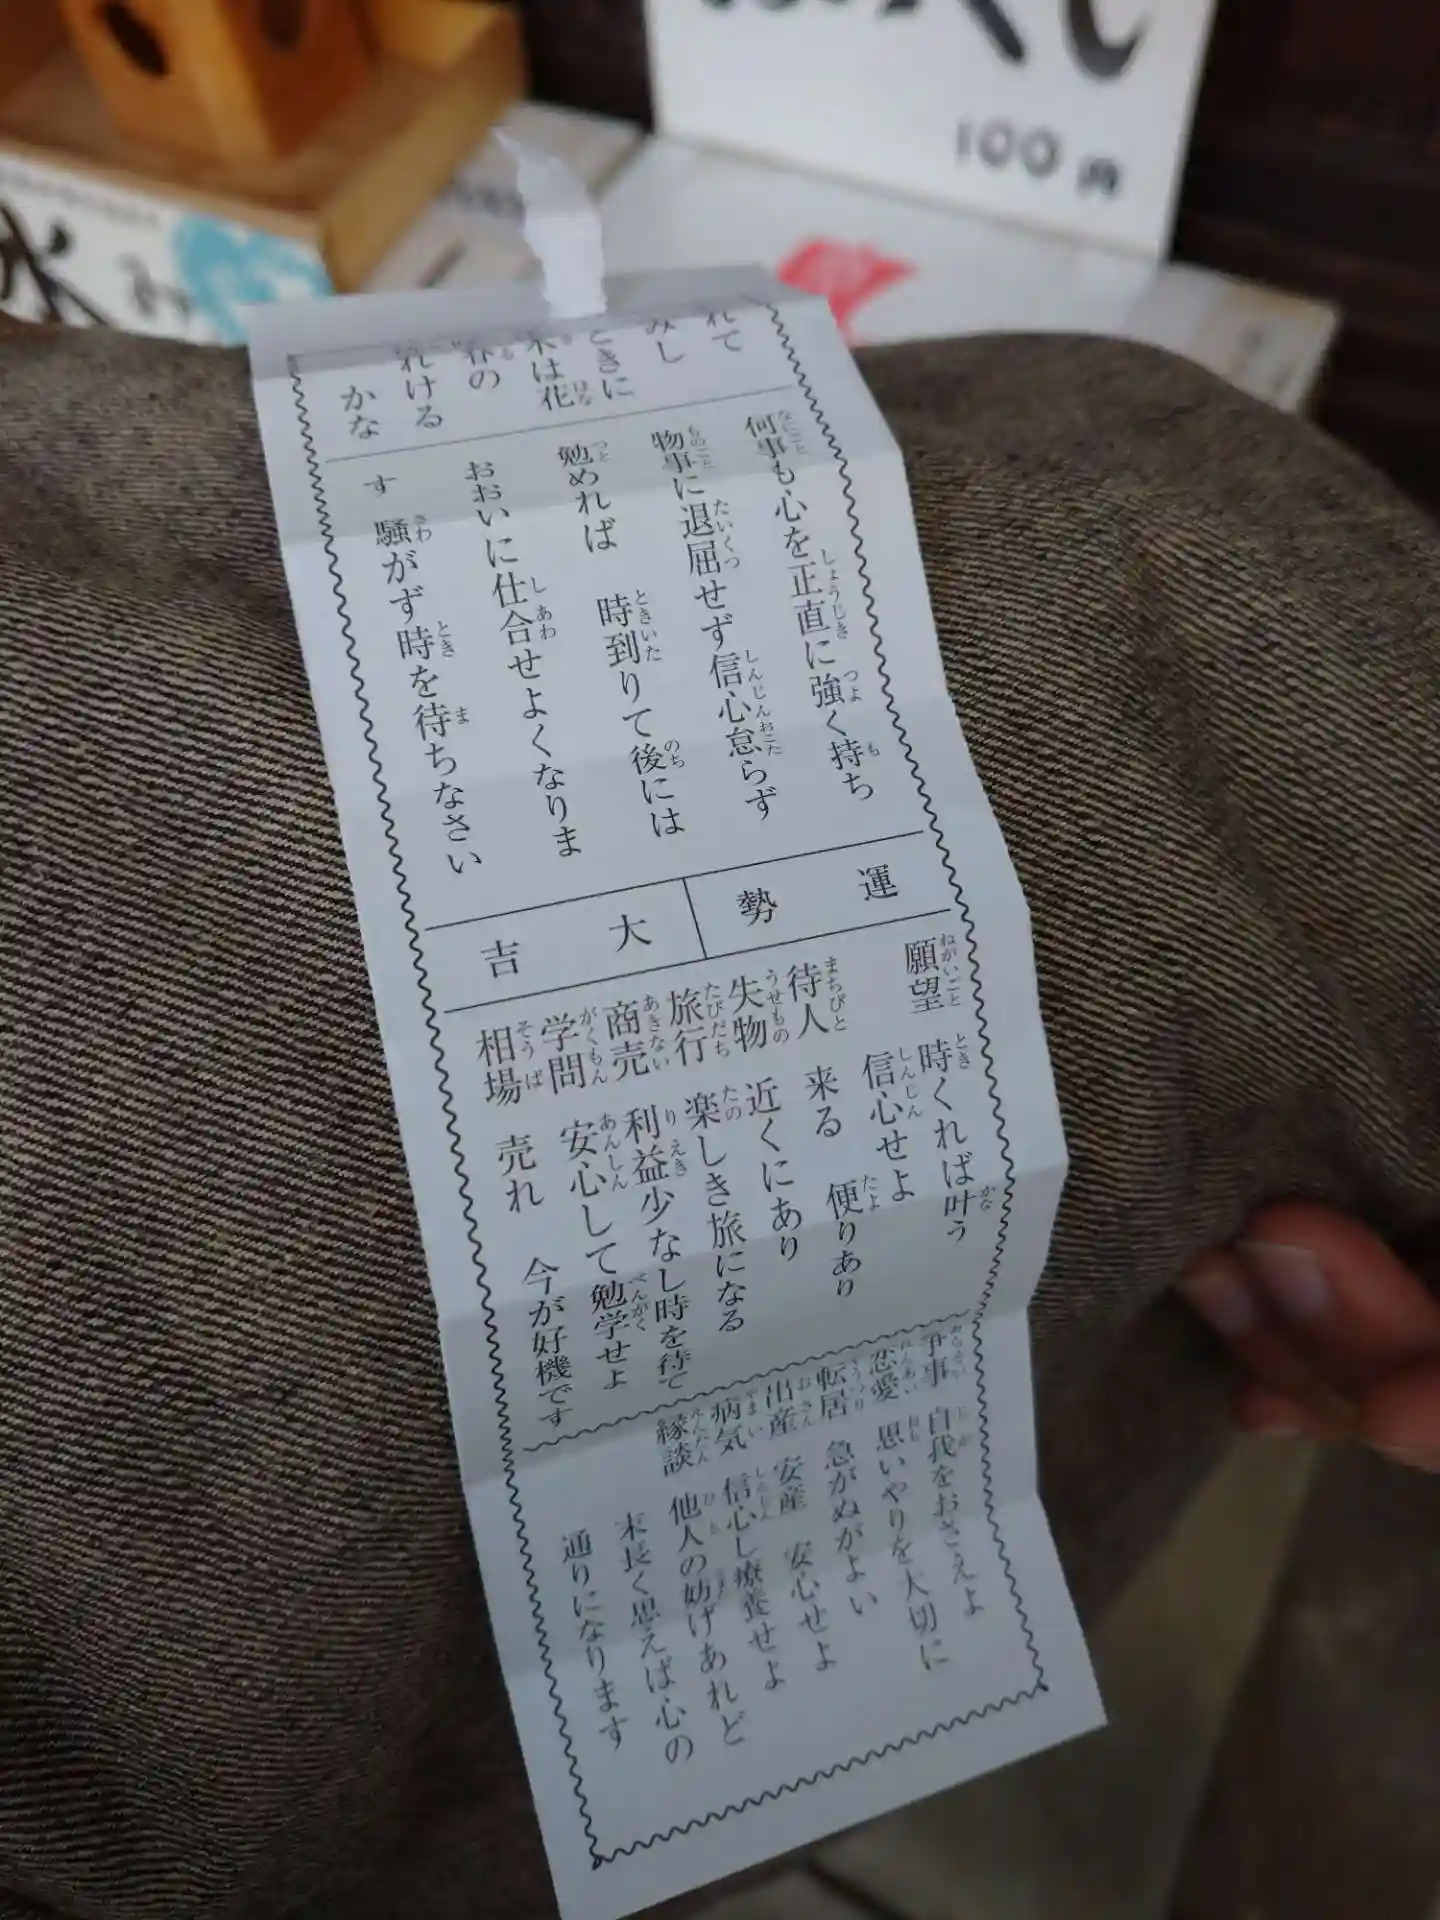 100円
れて
みし
ときに
木は花
春の
れける
かな
何事も心を正直に強く持ち
物事に退屈せず信心怠らず
勉めれば 時到りて後には
おおいに仕合せよくなりま
す 騒がず時を待ちなさい
運勢 大吉
願望 時くれば叶う
信心せよ
待人 来る 便りあり
失物 近くにあり
旅行 楽しき旅になる
商売 利益少なし時を待て
学問 安心して勉学せよ
相場 売れ 今が好機です
争事 自我をおさえよ
恋愛 思いやりを大切に
転居 急がぬがよい
出産 安産 安心せよ
病気 信心し療養せよ
縁談 他人の妨げあれど
末長く思えば心の
通りになります